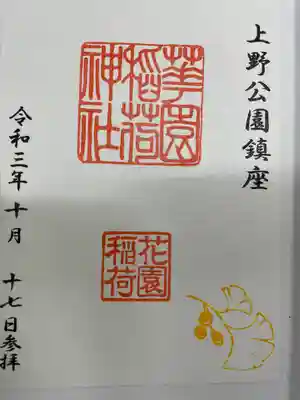 上野公園鎮座
華園
稲荷
神社
花園
稲荷
令和三年十月十七日参拝